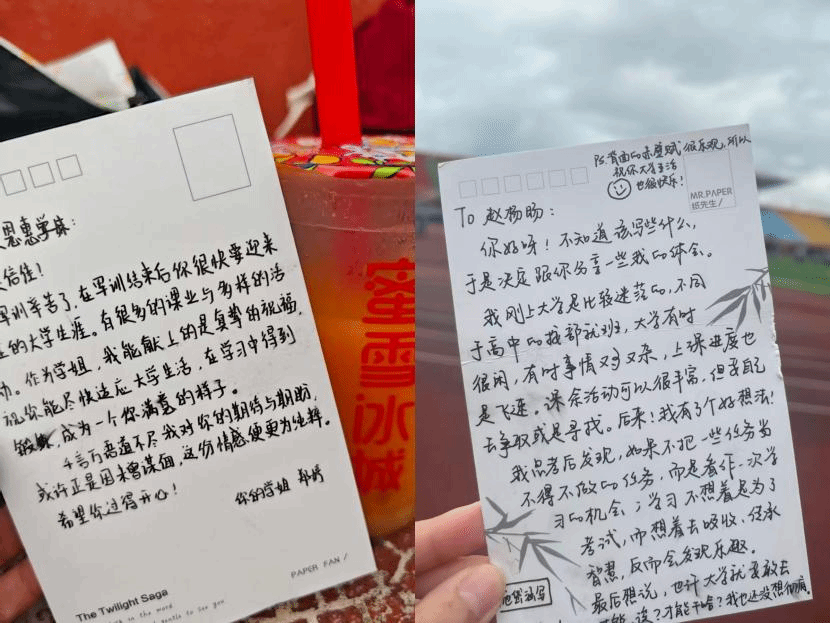 恩惠学妹：
信佳！
军训辛苦了，在军训结束后你很快要迎来
的大学生涯。有很多的课业与多样的活
动。作为学姐，我能献上的是真挚的祝福，
祝你能尽快适应大学生活，在学习中得到
锻炼，成为一个你满意的样子。
千言万语道不尽我对你的期待与期盼，
或许正是因未曾谋面，这份情感便更为纯粹。
希望你过得开心！
你的学姐
PAPER FAN /
The Twilight Saga
蜜雪冰城
PS.背面的赤壁赋很乐观，所以
祝你大学生活
也很快乐！
MR.PAPER
纸先生/
To 赵杨旸：
你好呀！不知道该写些什么，
于是决定跟你分享一些我的体会。
我刚上大学是比较迷茫的，不同
于高中的按部就班，大学有时
很闲，有时事情又多又杂，上课进度也
是飞速。课余活动可以很丰富，但要自己
去争取或是寻找。后来！我有了个好想法！
我思考后发现，如果不把一些任务当
不得不做的任务，而是看作一次学
习的机会；学习不想着是为了
考试，而想着去吸收、传承
智慧，反而会发现乐趣。
最后想说，也许大学就要敢去
我也还没想彻底。